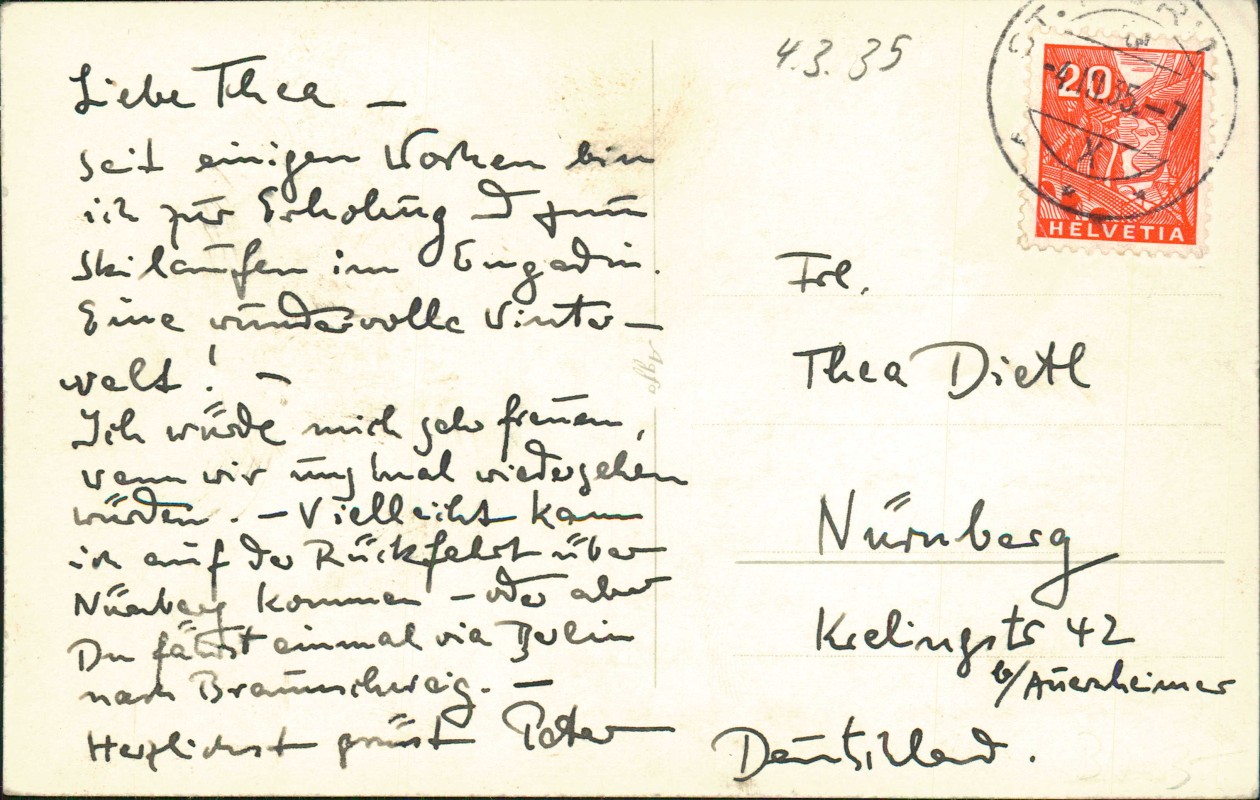 Liebe Thea —
seit einigen Wochen bin
ich zur Erholung & zum
Skilaufen im Engadin.
Eine wundervolle Winter-
welt! —
Ich würde mich sehr freuen,
wenn wir uns mal wiedersehen
würden. — Vielleicht kann
ich auf der Rückfahrt über
Nürnberg kommen — oder aber
Du fährst einmal via Berlin
nach Braunschweig. —
Herzlichst grüsst Peter
Agfa
4.3.35
ST. 
-4.III.35.-7
20
HELVETIA
Frl.
Thea Dietl
Nürnberg
Krelingstr 42
b/Auernheimer
Deutschland.